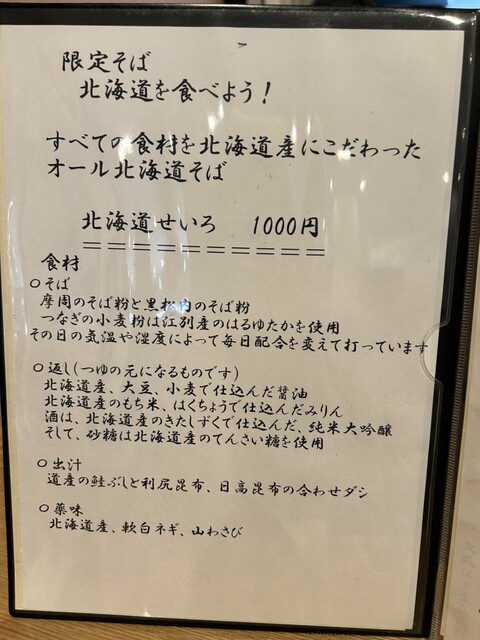 限定そば
北海道を食べよう！
すべての食材を北海道産にこだわった
オール北海道そば
北海道せいろ 1000円
==========
食材
○そば
摩周のそば粉と黒松内のそば粉
つなぎの小麦粉は江別産のはるゆたかを使用
その日の気温や湿度によって毎日配合を変えて打っています
○返し(つゆの元になるものです)
北海道産、大豆、小麦で仕込んだ醤油
北海道産のもち米、はくちょうで仕込んだみりん
酒は、北海道産のきたしずくで仕込んだ、純米大吟醸
そして、砂糖は北海道産のてんさい糖を使用
○出汁
道産の鮭ぶしと利尻昆布、日高昆布の合わせダシ
○薬味
北海道産、軟白ネギ、山わさび